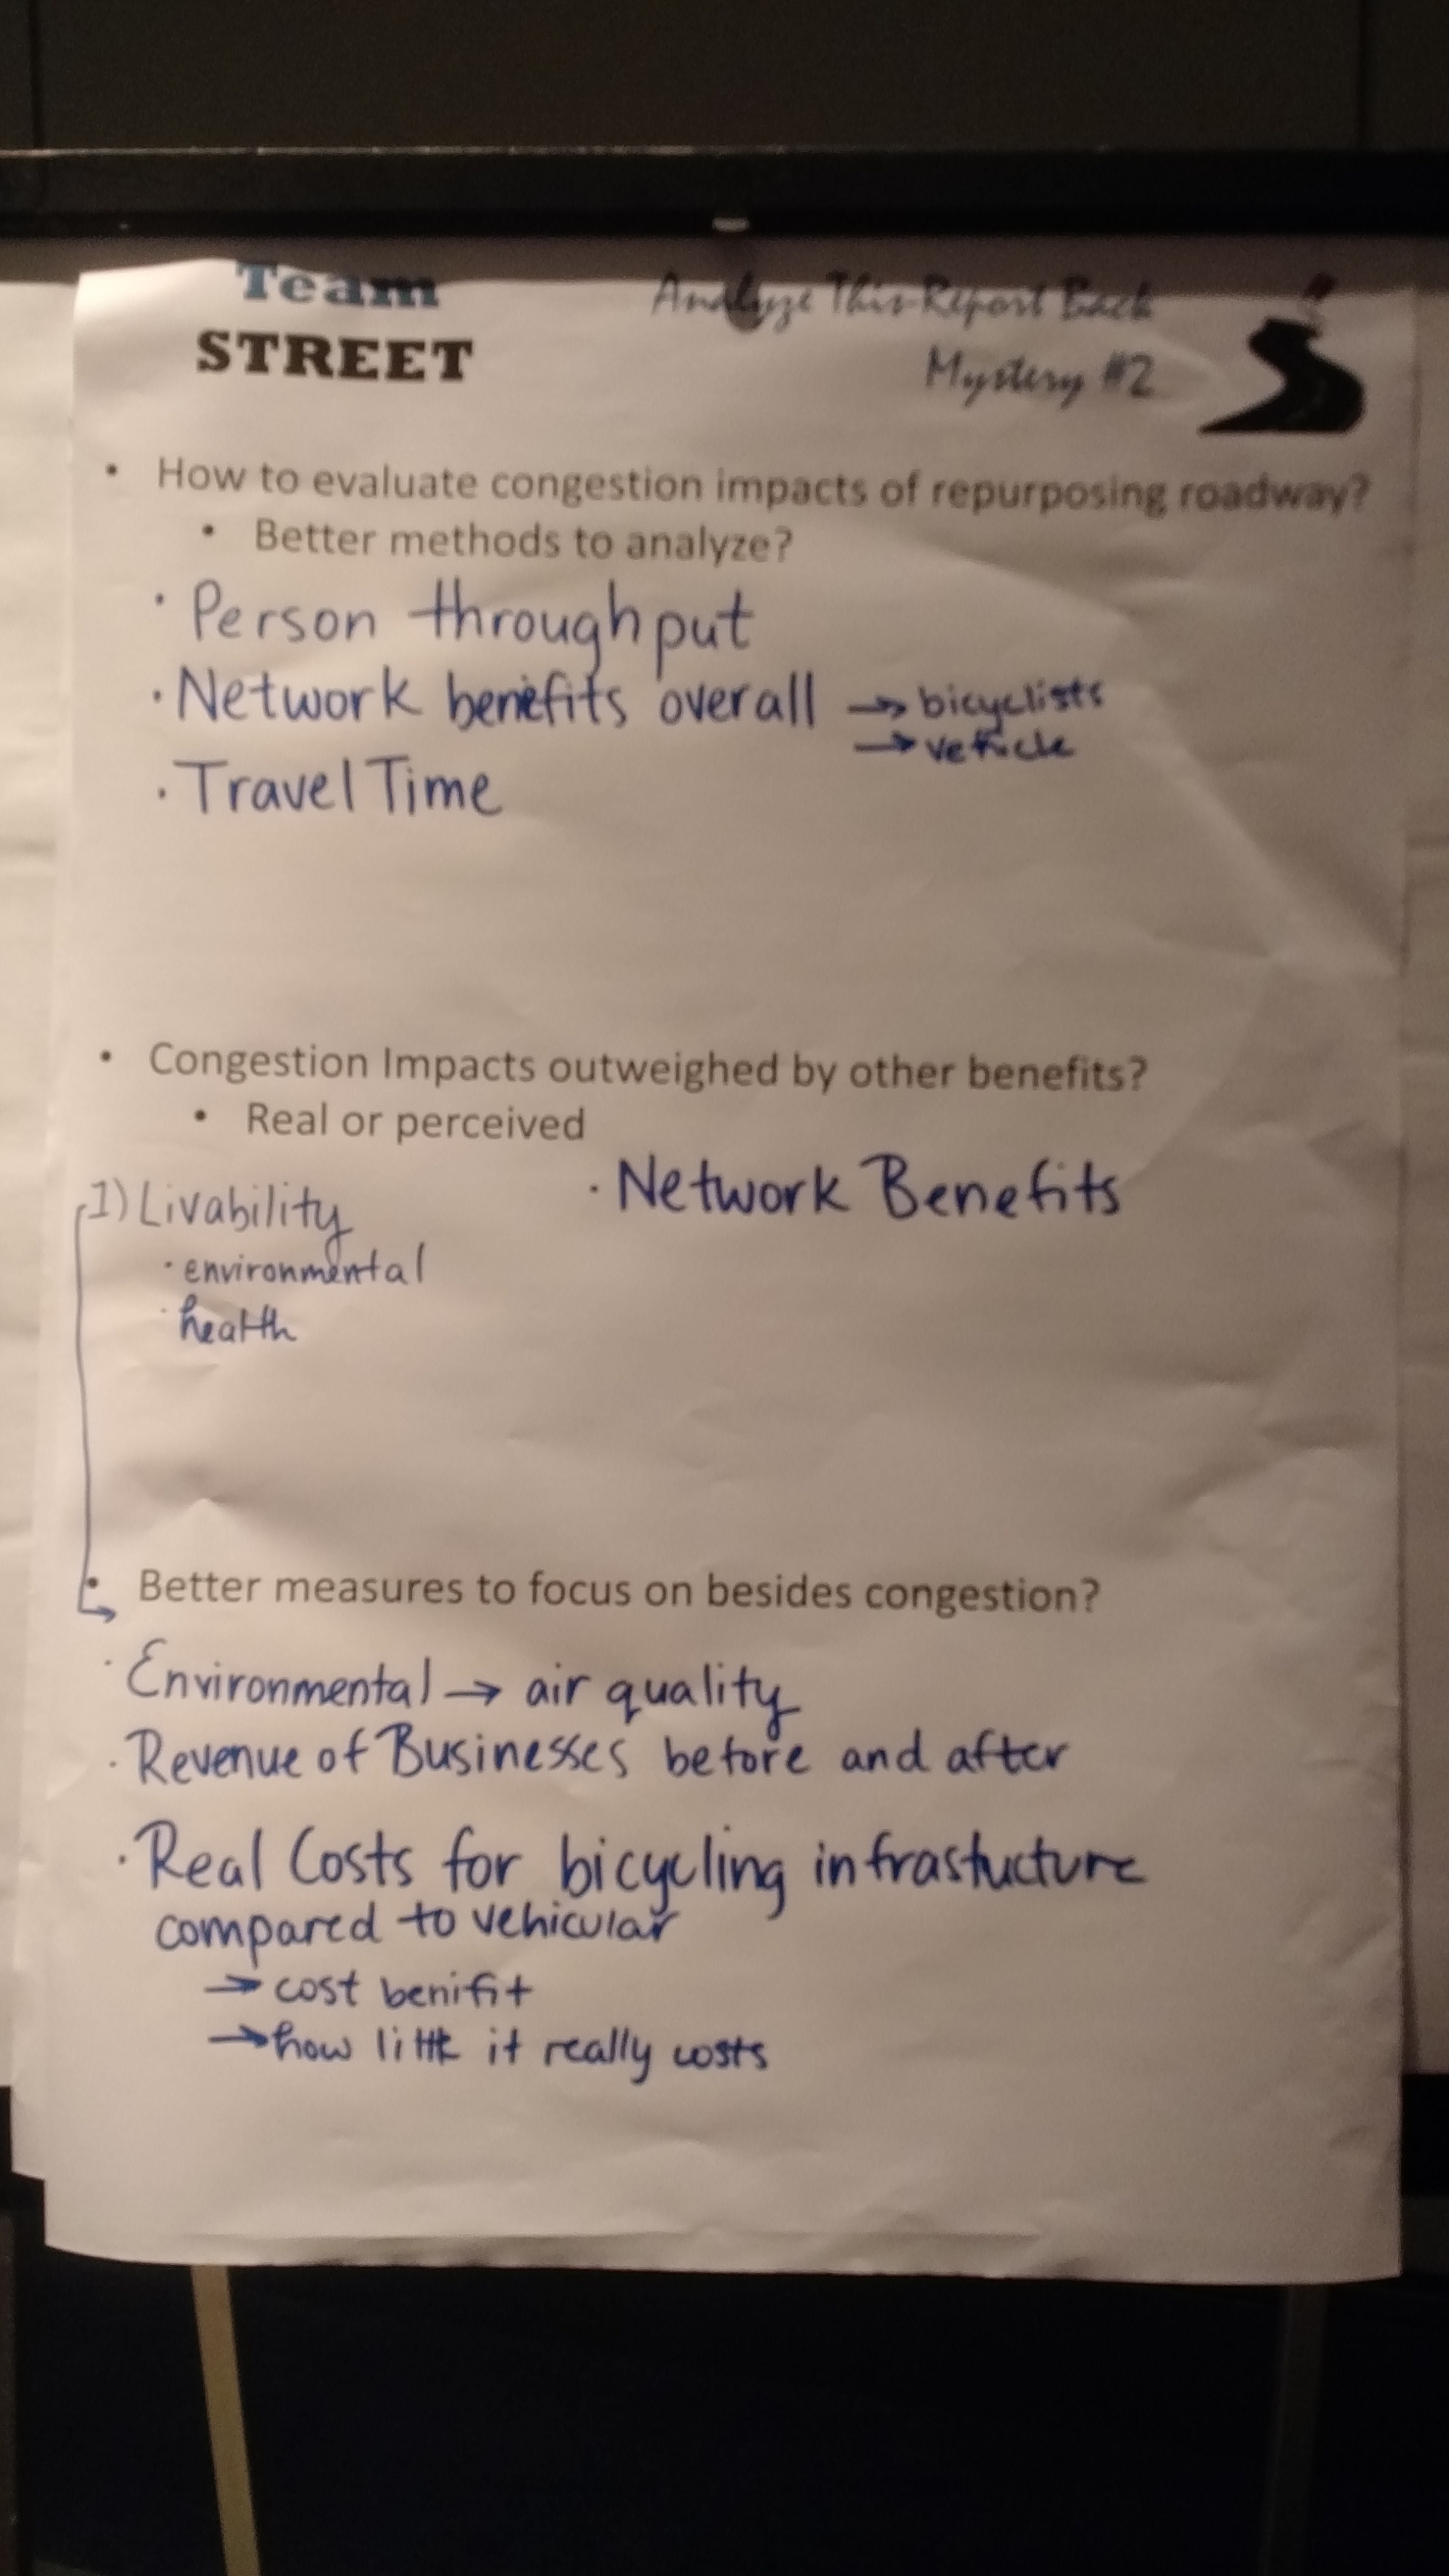 Team
STREET
Analyze This-Report Back
Mystery #2
• How to evaluate congestion impacts of repurposing roadway?
• Better methods to analyze?
· Person throughput
· Network benefits overall → bicyclists
→ vehicle
· Travel Time
• Congestion Impacts outweighed by other benefits?
• Real or perceived
1) Livability
· environmental
· health
· Network Benefits
• Better measures to focus on besides congestion?
· Environmental → air quality
· Revenue of Businesses before and after
· Real Costs for bicycling infrastucture
compared to vehicular
→ cost benifit
→ how little it really costs